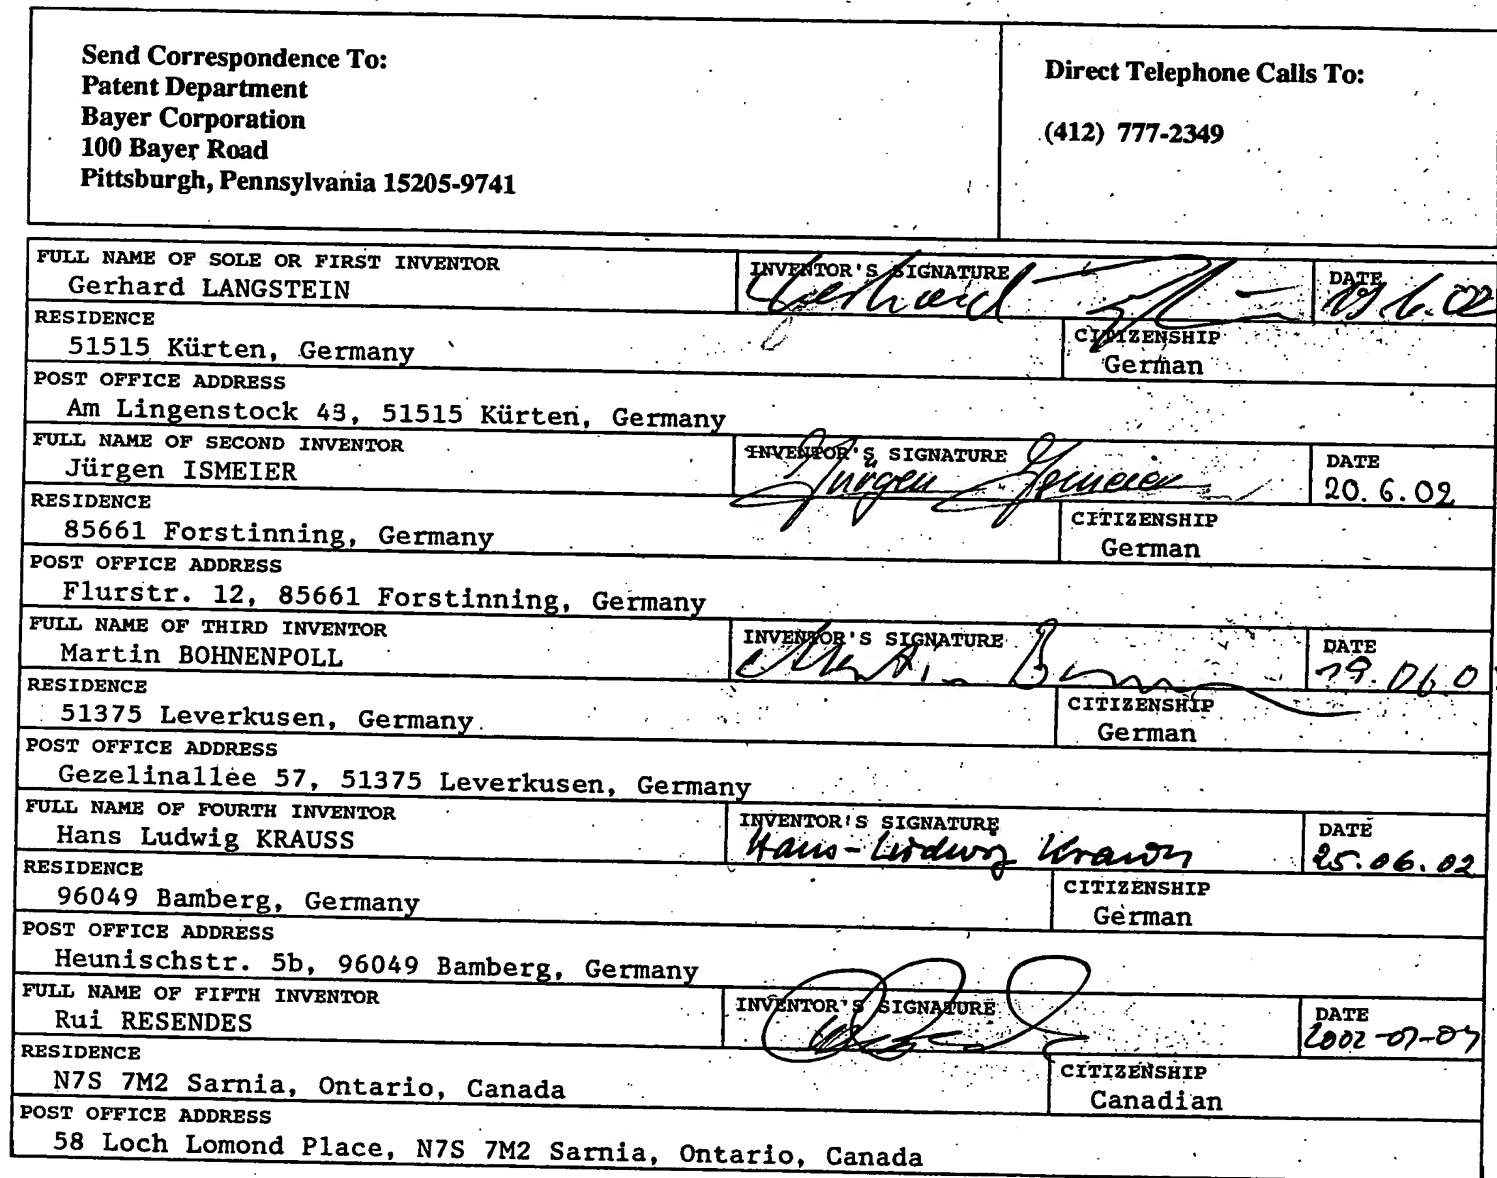 Send Correspondence To:
Patent Department
Bayer Corporation
100 Bayer Road
Pittsburgh, Pennsylvania 15205-9741
Direct Telephone Calls To:
(412) 777-2349
FULL NAME OF SOLE OR FIRST INVENTOR
Gerhard LANGSTEIN
INVENTOR'S SIGNATURE
Gerhard
DATE
19.6.02
RESIDENCE
51515 Kürten, Germany
CITIZENSHIP
German
POST OFFICE ADDRESS
Am Lingenstock 43, 51515 Kürten, Germany
FULL NAME OF SECOND INVENTOR
Jürgen ISMEIER
INVENTOR'S SIGNATURE
Jürgen Ismeier
DATE
20.6.02
RESIDENCE
85661 Forstinning, Germany
CITIZENSHIP
German
POST OFFICE ADDRESS
Flurstr. 12, 85661 Forstinning, Germany
FULL NAME OF THIRD INVENTOR
Martin BOHNENPOLL
INVENTOR'S SIGNATURE
Martin
DATE
19.06.0
RESIDENCE
51375 Leverkusen, Germany
CITIZENSHIP
German
POST OFFICE ADDRESS
Gezelinallee 57, 51375 Leverkusen, Germany
FULL NAME OF FOURTH INVENTOR
Hans Ludwig KRAUSS
INVENTOR'S SIGNATURE
Hans-Ludwig Krauss
DATE
25.06.02
RESIDENCE
96049 Bamberg, Germany
CITIZENSHIP
German
POST OFFICE ADDRESS
Heunischstr. 5b, 96049 Bamberg, Germany
FULL NAME OF FIFTH INVENTOR
Rui RESENDES
INVENTOR'S SIGNATURE
DATE
RESIDENCE
N7S 7M2 Sarnia, Ontario, Canada
CITIZENSHIP
Canadian
POST OFFICE ADDRESS
58 Loch Lomond Place, N7S 7M2 Sarnia, Ontario, Canada